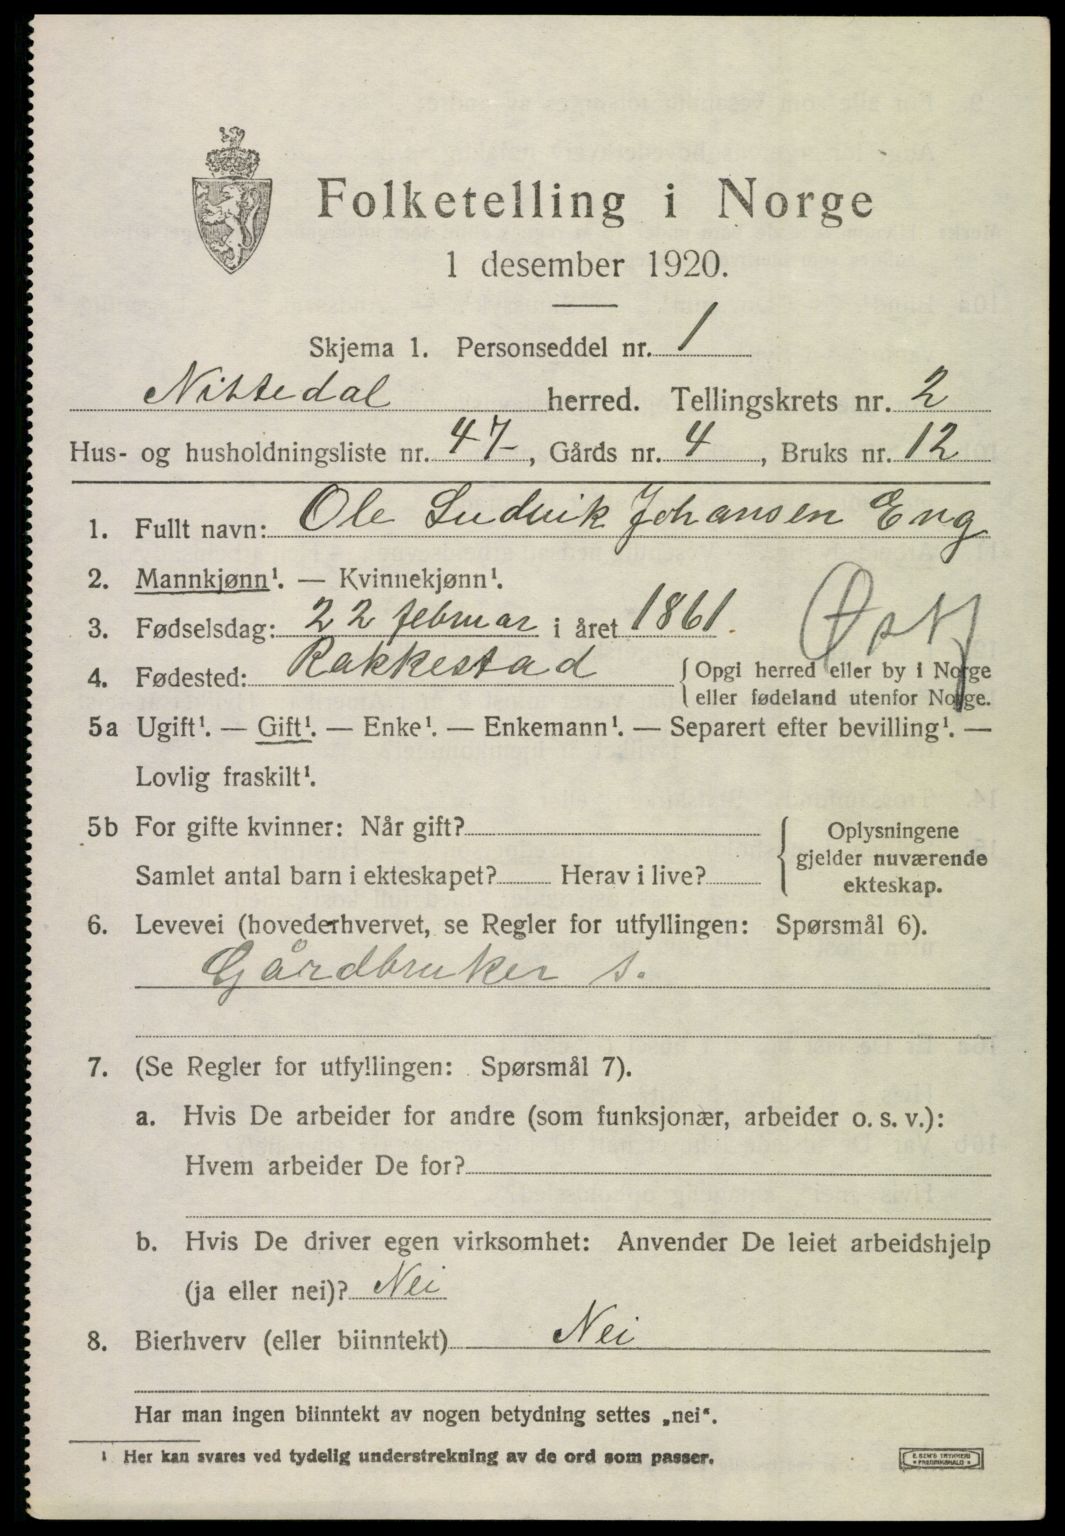 Folketelling i Norge
1 desember 1920.
Skjema 1. Personseddel nr. 1
Nittedal herred. Tellingskrets nr. 2
Hus- og husholdningsliste nr. 47-, Gårds nr. 4, Bruks nr. 12
1. Fullt navn: Ole Ludvik Johansen Eng
2. Mannkjønn¹. — Kvinnekjønn¹.
3. Fødselsdag: 22 februar i året 1861.
Østf
4. Fødested: Rakkestad { Opgi herred eller by i Norge
eller fødeland utenfor Norge.
5a Ugift¹. — Gift¹. — Enke¹. — Enkemann¹. — Separert efter bevilling¹. —
Lovlig fraskilt¹.
5b For gifte kvinner: Når gift?
Samlet antal barn i ekteskapet? Herav i live?
{ Oplysningene
gjelder nuværende
ekteskap.
6. Levevei (hovederhvervet, se Regler for utfyllingen: Spørsmål 6).
Gårdbruker s.
7. (Se Regler for utfyllingen: Spørsmål 7).
a. Hvis De arbeider for andre (som funksjonær, arbeider o. s. v.):
Hvem arbeider De for?
b. Hvis De driver egen virksomhet: Anvender De leiet arbeidshjelp
(ja eller nei)? Nei
8. Bierhverv (eller biinntekt) Nei
Har man ingen biinntekt av nogen betydning settes „nei“.
¹ Her kan svares ved tydelig understrekning av de ord som passer.